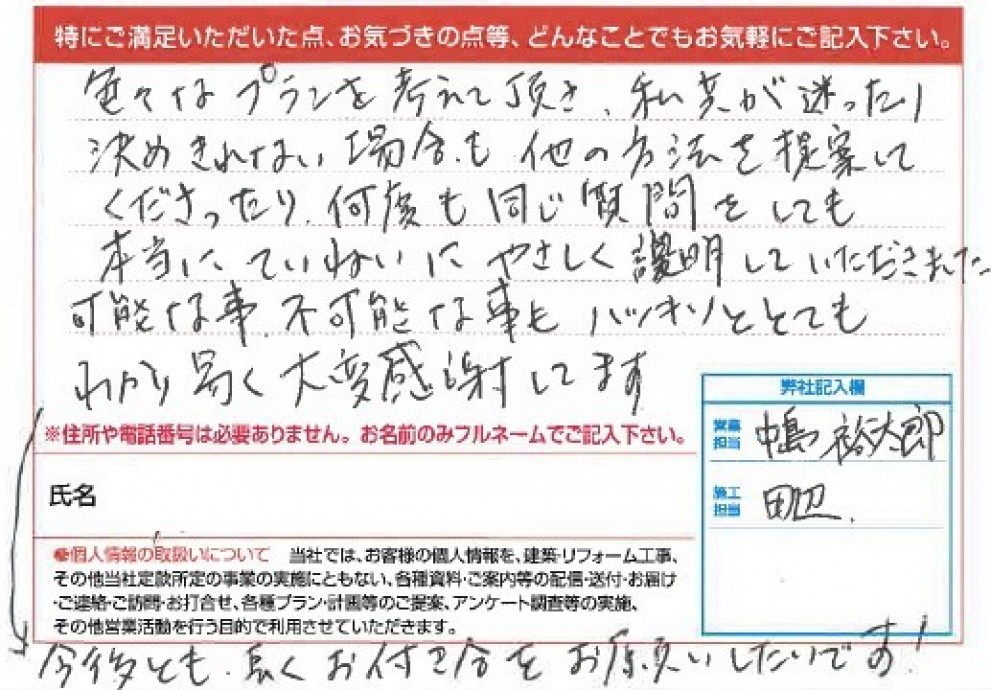 特にご満足いただいた点、お気づきの点等、どんなことでもお気軽にご記入下さい。
色々なプランを考えて頂き、私共が迷ったり
決めきれない場合も他の方法を提案して
くださったり、何度も同じ質問をしても
本当にていねいにやさしく説明していただきました
可能な事、不可能な事もハッキリととても
わかり易く大変感謝してます
※住所や電話番号は必要ありません。お名前のみフルネームでご記入下さい。
氏名
●個人情報の取扱いについて 当社では、お客様の個人情報を、建築・リフォーム工事、
その他当社定款所定の事業の実施にともない、各種資料・ご案内等の配信・送付・お届け
・ご連絡・ご訪問・お打合せ、各種プラン・計画等のご提案、アンケート調査等の実施、
その他営業活動を行う目的で利用させていただきます。
弊社記入欄
営業担当 中嶋 裕太郎
施工担当 田辺
今後とも、長くお付き合をお願いしたいです!